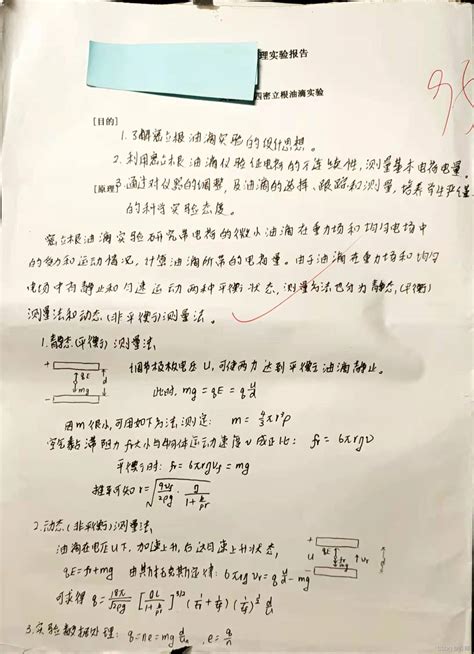 理实验报告
四密立根油滴实验
95
[目的]
1.了解密立根油滴实验的设计思想。
2.利用密立根油滴仪验证电荷的不连续性,测量基本电荷电量。
[原理] 3.通过对仪器的调整,及油滴的选择、跟踪和测量,培养学生严谨
的科学实验态度。
密立根油滴实验研究带电荷的微小油滴在重力场和均匀电场中
的受力和运动情况,计算油滴所带的电荷量。由于油滴在重力场和均匀
电场中有静止和匀速运动两种平衡状态,测量方法也分为静态(平衡)
测量法和动态(非平衡)测量法。
1.静态(平衡)测量法
调节极板电压U,可使两力达到平衡,油滴静止。
+ qE mg d -
此时, mg = qE = q U/d
因m很小,可用如下方法测定: m = 4/3 πr³ρ
空气黏滞阻力fr大小与物体运动速度v成正比: fr = 6πrηv
平衡时: fr = 6πrηvg = mg
推导可知 r = √(9ηvg/2ρg · 1/(1+b/pr))
2.动态(非平衡)测量法
油滴在电压U下,加速上升,后达匀速上升状态,
qE = fr + mg 由斯托克斯定律: 6πrηvr = q U/d - mg
+ U qE mg vr d -
可求得 q = 18π/√2ρg [ηl/(1+b/pr)]^3/2 (1/tr + 1/tg)(1/tg)^1/2 d/U
3.实验数据处理: q = ne = mg d/U , e = q/n